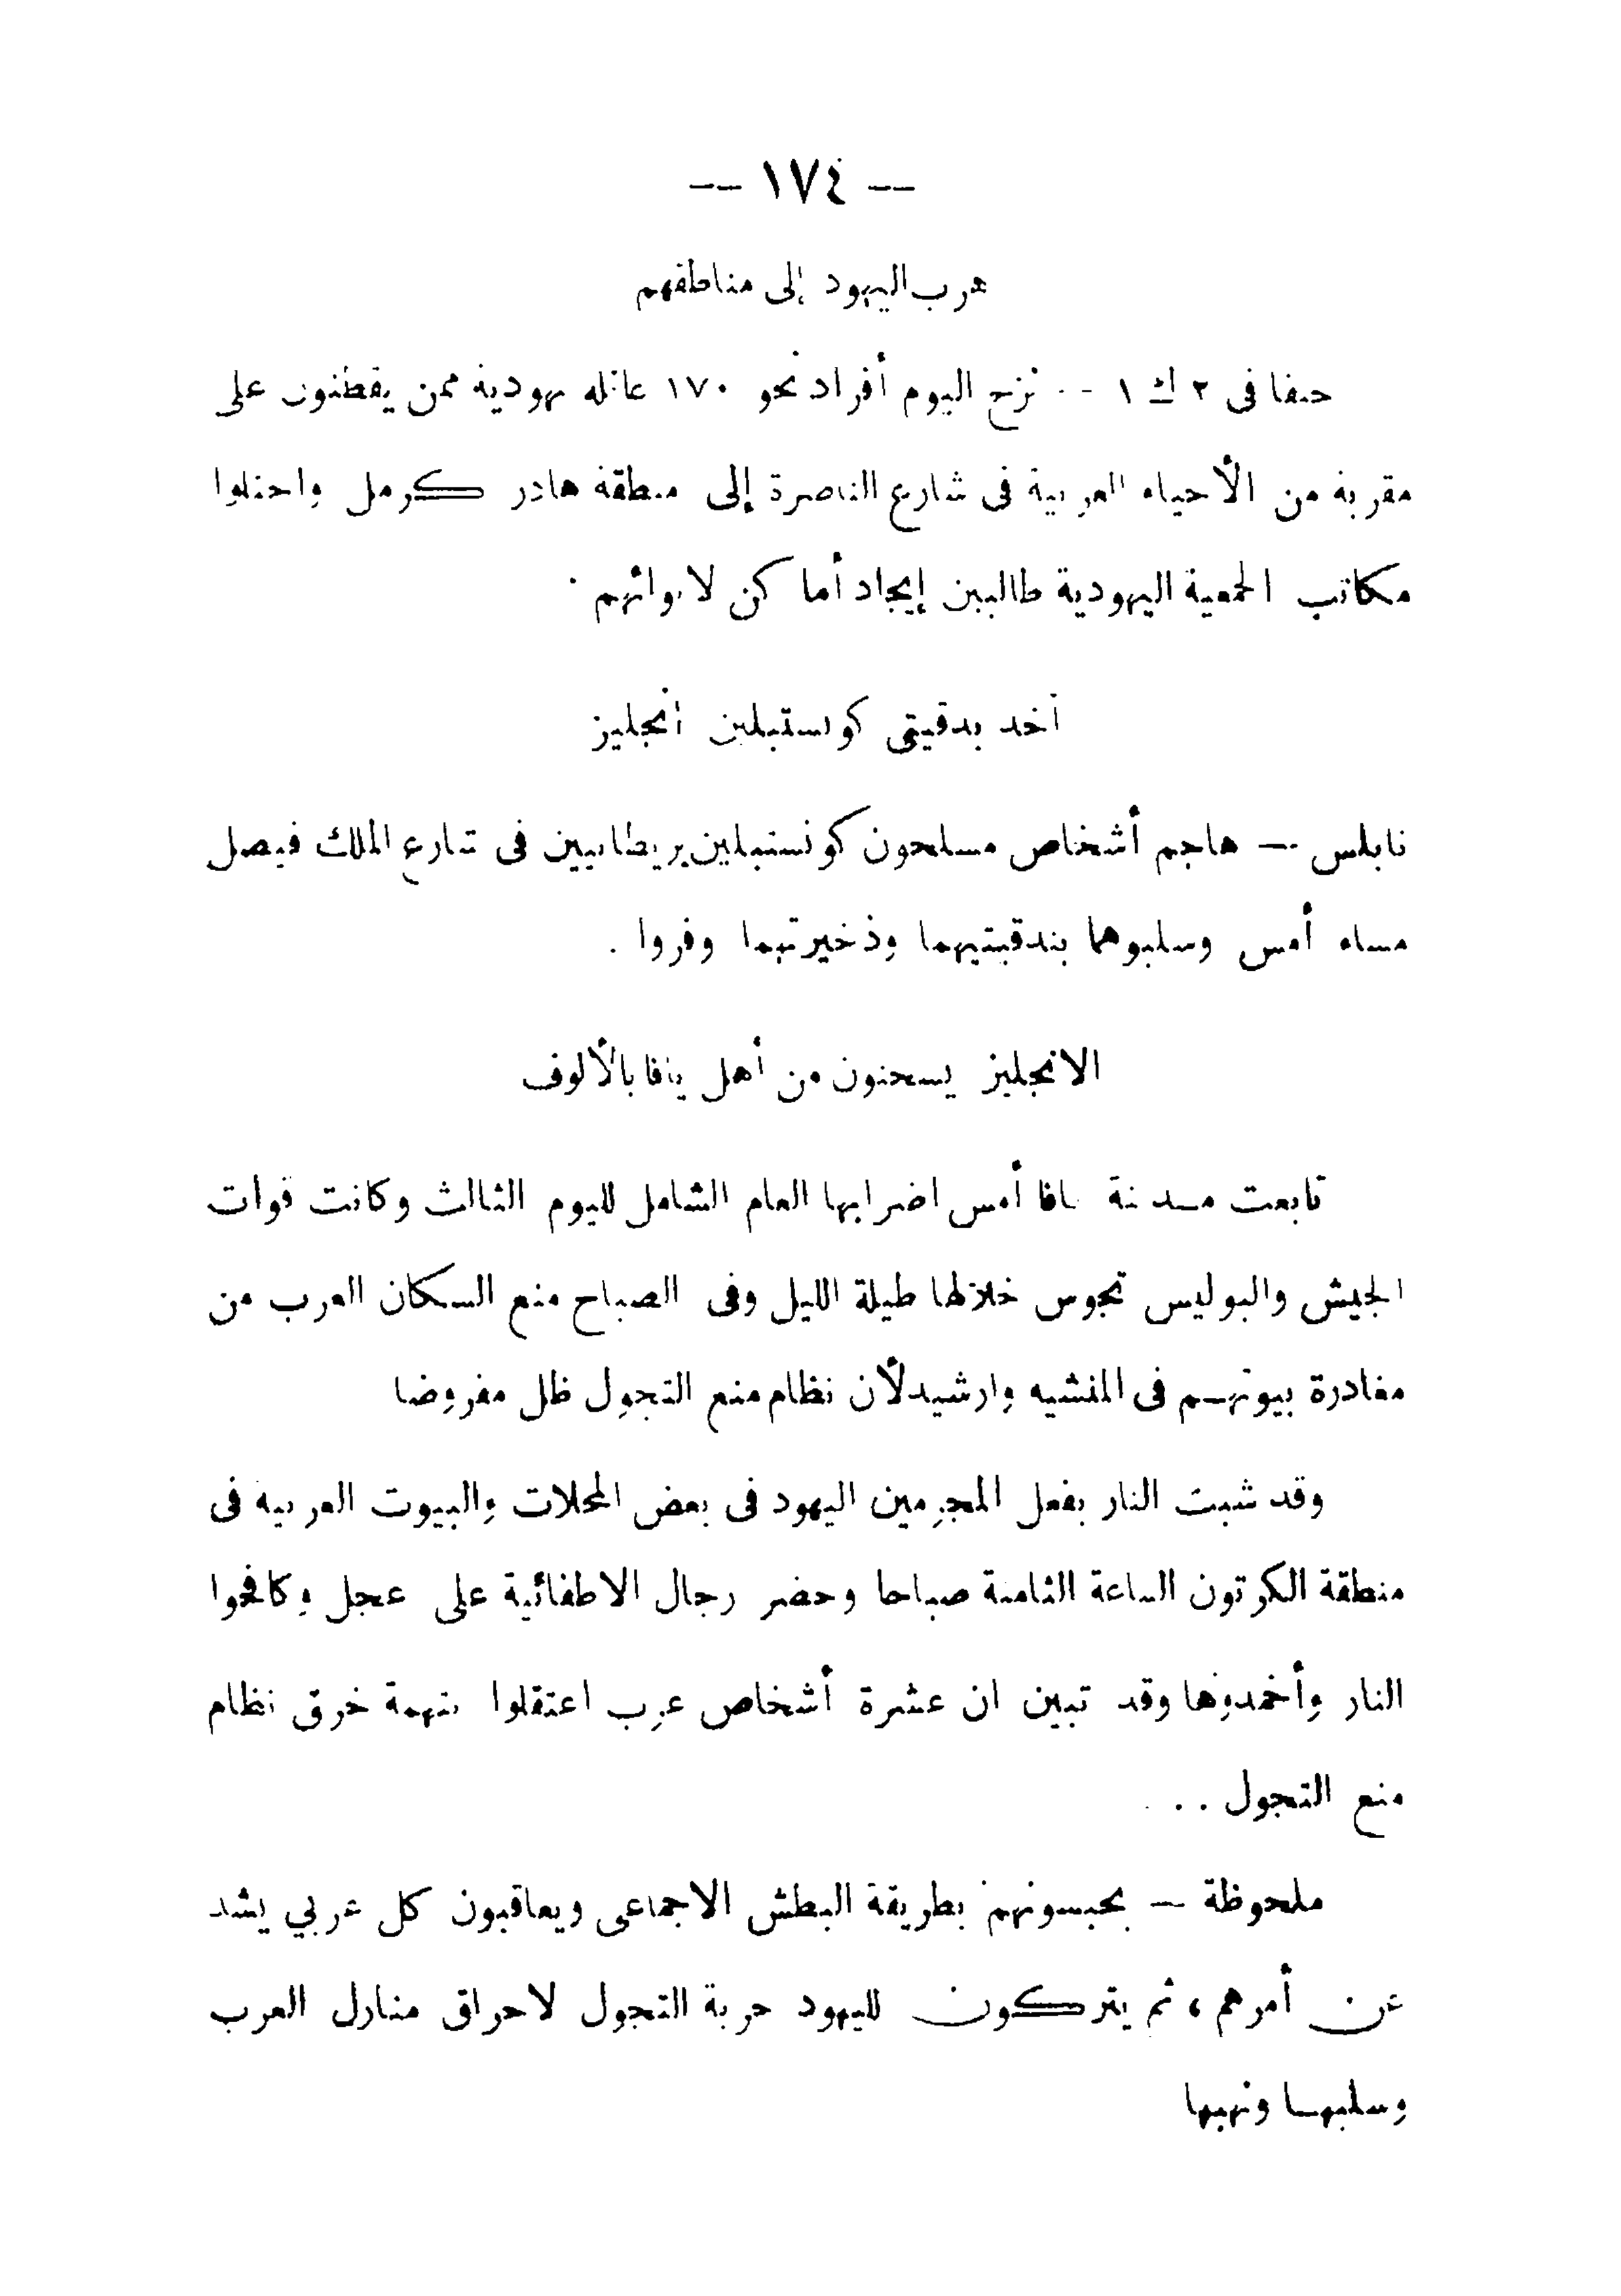 -- ١٧٤ --
هرب اليهود إلى مناطقهم
حيفا فى ٢ ك ١ -- نزح اليوم أفراد نحو ١٧٠ عائله يهودية ممن يقطنون على
مقربة من الأحياء العربية فى شارع الناصرة إلى منطقة هادر كرمل واحتلوا
مكاتب الجمعية اليهودية طالبين إيجاد أماكن لايوائهم .
أخذ بندقيتى كونستبلين انجليز
نابلس -- هاجم أشخاص مسلحون كونستبلين بريطانيين فى شارع الملك فيصل
مساء أمس وسلبوهما بندقيتيهما وذخيرتهما وفروا .
الانجليز يسجنون من أهل يافا بالألوف
تابعت مدينة يافا أمس اضرابها العام الشامل لليوم الثالث وكانت قوات
الجيش والبوليس تجوس خلالها طيلة الليل وفى الصباح منع السكان العرب من
مغادرة بيوتهم فى المنشيه وارشيد لأن نظام منع التجول ظل مفروضا
وقد شبت النار بفعل المجرمين اليهود فى بعض المحلات والبيوت العربيه فى
منطقة الكرتون الساعة الثامنة صباحا وحضر رجال الاطفائية على عجل وكافحوا
النار وأخمدوها وقد تبين ان عشرة أشخاص عرب اعتقلوا بتهمة خرق نظام
منع التجول . .
ملحوظة — يحبسونهم بطريقة البطش الاجماعى ويعاقبون كل عربي يشد
عن أمرهم ، ثم يتركون لليهود حرية التجول لاحراق منازل العرب
وسلبها ونهبها